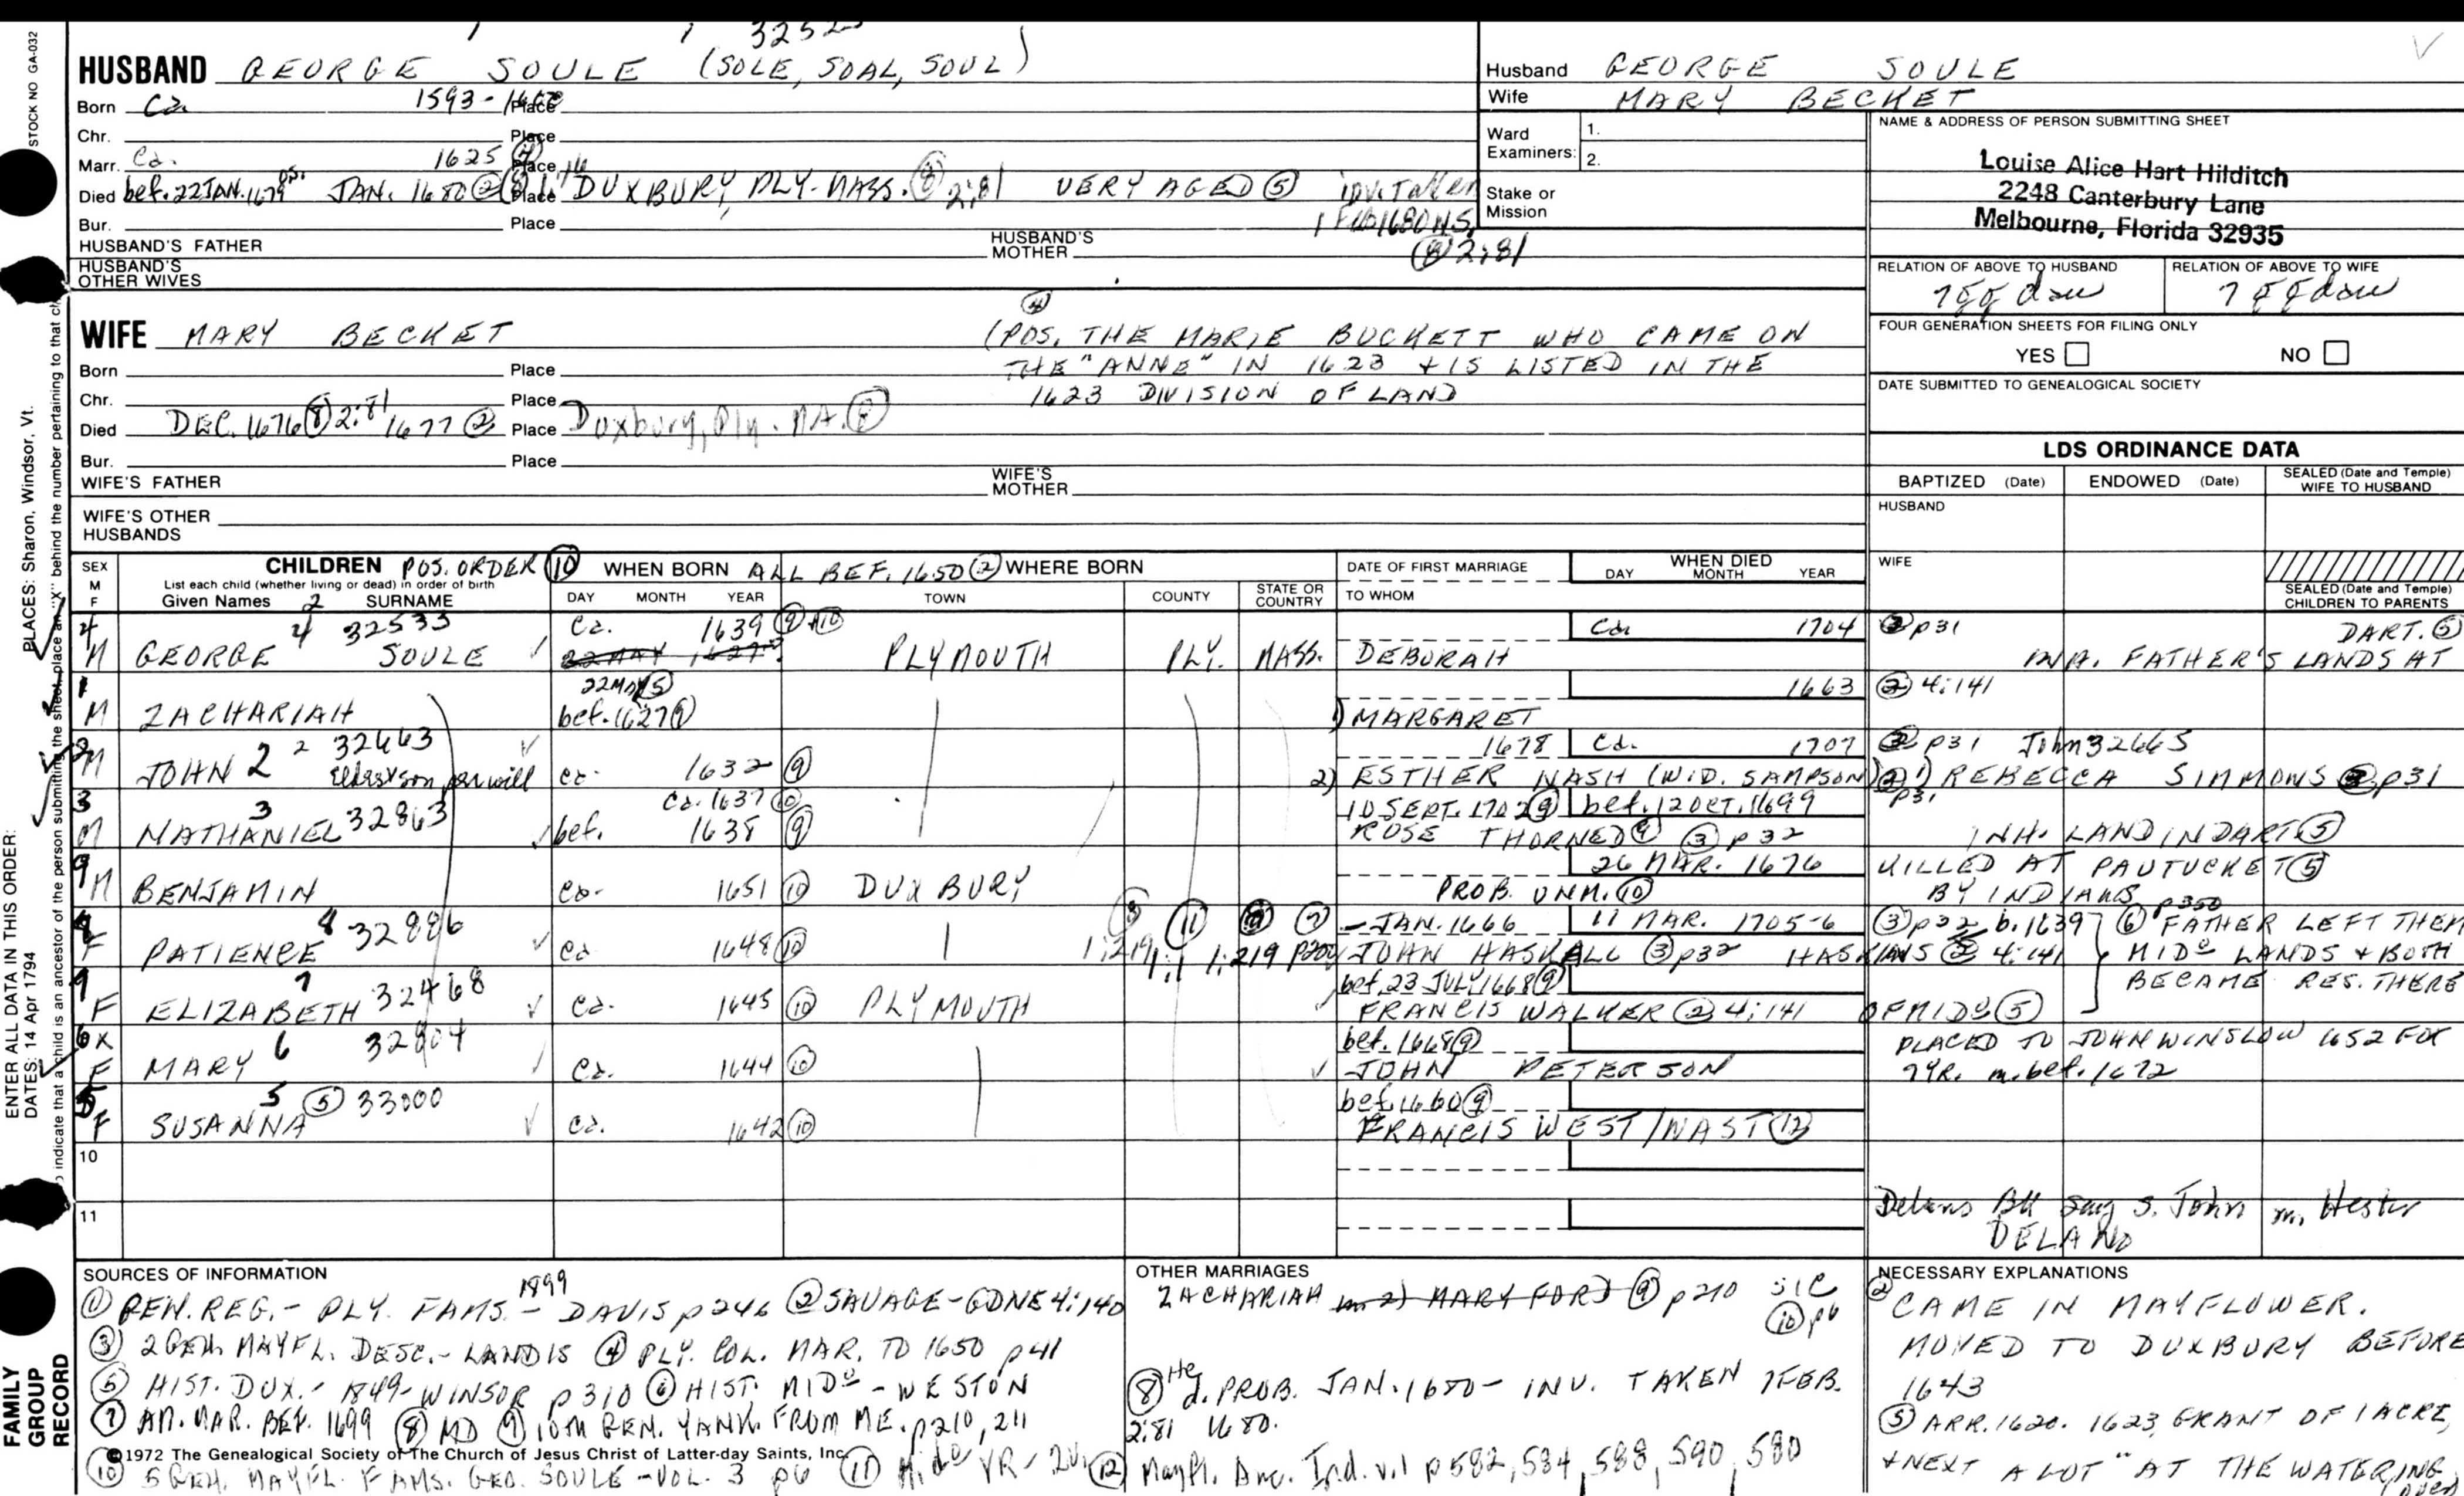 3252
HUSBAND GEORGE SOULE (SOLE, SOAL, SOUL)
Born Ca. 1593- Place
Chr. Place
Marr. Ca. 1625 ④ Place
Died bef. 22 JAN. 1679 OS. JAN. 1680 ② Place DUXBURY, PLY. MASS. ⑧ 2:81 VERY AGED ⑤ inv. Taken
1 FEB 1680 NS.
⑧ 2:81
Bur. Place
HUSBAND'S FATHER HUSBAND'S MOTHER
HUSBAND'S OTHER WIVES
WIFE MARY BECKET ④ (POS. THE MARIE BUCKETT WHO CAME ON
THE "ANNE" IN 1623 + IS LISTED IN THE
1623 DIVISION OF LAND
Born Place
Chr. Place
Died DEC. 1676 ⑧ 2:81 1677 ② Place Duxbury, Ply. MA. ⑧
Bur. Place
WIFE'S FATHER WIFE'S MOTHER
WIFE'S OTHER HUSBANDS
Husband GEORGE SOULE
Wife MARY BECKET
Ward Examiners: 1.
2.
Stake or Mission
NAME & ADDRESS OF PERSON SUBMITTING SHEET
Louise Alice Hart Hilditch
2248 Canterbury Lane
Melbourne, Florida 32935
RELATION OF ABOVE TO HUSBAND RELATION OF ABOVE TO WIFE
7 gg dau 7 gg dau
FOUR GENERATION SHEETS FOR FILING ONLY
YES NO
DATE SUBMITTED TO GENEALOGICAL SOCIETY
LDS ORDINANCE DATA
BAPTIZED (Date) ENDOWED (Date) SEALED (Date and Temple) WIFE TO HUSBAND
HUSBAND
WIFE
SEALED (Date and Temple) CHILDREN TO PARENTS
SEX M F
CHILDREN POS. ORDER ⑩
List each child (whether living or dead) in order of birth
Given Names SURNAME
WHEN BORN ALL BEF. 1650 ② WHERE BORN
DAY MONTH YEAR TOWN COUNTY STATE OR COUNTRY
DATE OF FIRST MARRIAGE
TO WHOM
WHEN DIED
DAY MONTH YEAR
4 4 32533 Ca. 1639 ⑨+⑩ Ca. 1704 ③ p31 DART. ⑤
M GEORGE SOULE 22 MAY 1627 PLYMOUTH PLY. MASS. DEBORAH INH. FATHER'S LANDS AT
1 22 MAY ⑤ 1663 ② 4:141
M ZACHARIAH bef. 1627 ⑨ 1) MARGARET
2 2 32663 1678 Ca. 1707 ③ p31 John 32665
M JOHN 2 Eldest son per will ca. 1632 ⑨ 2) ESTHER NASH (WID. SAMPSON) 1) REBECCA SIMMONS p31
p31
3 3 Ca. 1637 ⑩ 10 SEPT. 1702 ⑨ bef. 12 OCT. 1699
M NATHANIEL 32863 bef. 1638 ⑨ ROSE THORNED ③ p32 INH. LAND IN DART ⑤
9 26 MAR. 1676 KILLED AT PAUTUCKET ⑤
M BENJAMIN ca. 1651 ⑩ DUXBURY PROB. UNM. ⑩ BY INDIANS
8 32886 ⑪ ⑦ JAN. 1666 11 MAR. 1705-6 ③ p32 b. 1639 ⑥ p350 FATHER LEFT THEM
F PATIENCE ca 1648 ⑩ 1:219 1:1 1:219 JOHN HASKALL ③ p32 HASKINS ② 4:141 MIDº LANDS + BOTH
BECAME RES. THERE
7 32468 bef. 23 JULY 1668 ⑨
F ELIZABETH Ca. 1645 ⑩ PLYMOUTH FRANCIS WALKER ② 4:141 OF MIDº ⑤
6 X 6 32904 bef. 1668 ⑨ PLACED TO JOHN WINSLOW 1652 FOR
F MARY Ca. 1644 ⑩ JOHN PETERSON 7 YR. m. bef. 1672
5 5 ⑤ 33000 bef. 1660 ⑨
F SUSANNA Ca. 1642 ⑩ FRANCIS WEST/WAST ⑫
10
11
Delano BK say s. John m. Hester
DELANO
SOURCES OF INFORMATION
① GEN. REG. - PLY. FAMS. - 1899 DAVIS p246 ② SAVAGE - GDNE 4:140
③ 2 GEN. MAYFL. DESC. - LANDIS ④ PLY. COL. MAR. TO 1650 p41
⑤ HIST. DUX. - 1849 - WINSOR p310 ⑥ HIST. MIDº - WESTON
⑦ AM. MAR. BEF. 1699 ⑧ MD ⑨ 10TH GEN. YANK. FROM ME. p210, 211
©1972 The Genealogical Society of The Church of Jesus Christ of Latter-day Saints, Inc.
⑩ 5 GEN. MAYFL. FAMS. GEO. SOULE - VOL. 3 p6 ⑪ Midº VR - ⑫ Mayfl. Anc. Ind. v.1 p 582, 534, 588, 590, 580
OTHER MARRIAGES
ZACHARIAH m. 2) MARY FORD ⑨ p210 SIC
⑩ p6
⑧ He d. PROB. JAN. 1680 - INV. TAKEN 1 FEB.
2:81 1680.
NECESSARY EXPLANATIONS
② CAME IN MAYFLOWER.
MOVED TO DUXBURY BEFORE
1643
⑤ ARR. 1620. 1623, GRANT OF 1 ACRE,
+ NEXT A LOT "AT THE WATERING
(over)
STOCK NO GA-032
ENTER ALL DATA IN THIS ORDER:
PLACES: Sharon, Windsor, Vt.
DATES: 14 Apr 1794
indicate that a child is an ancestor of the person submitting the sheet, place an "X" behind the number pertaining to that
FAMILY GROUP RECORD